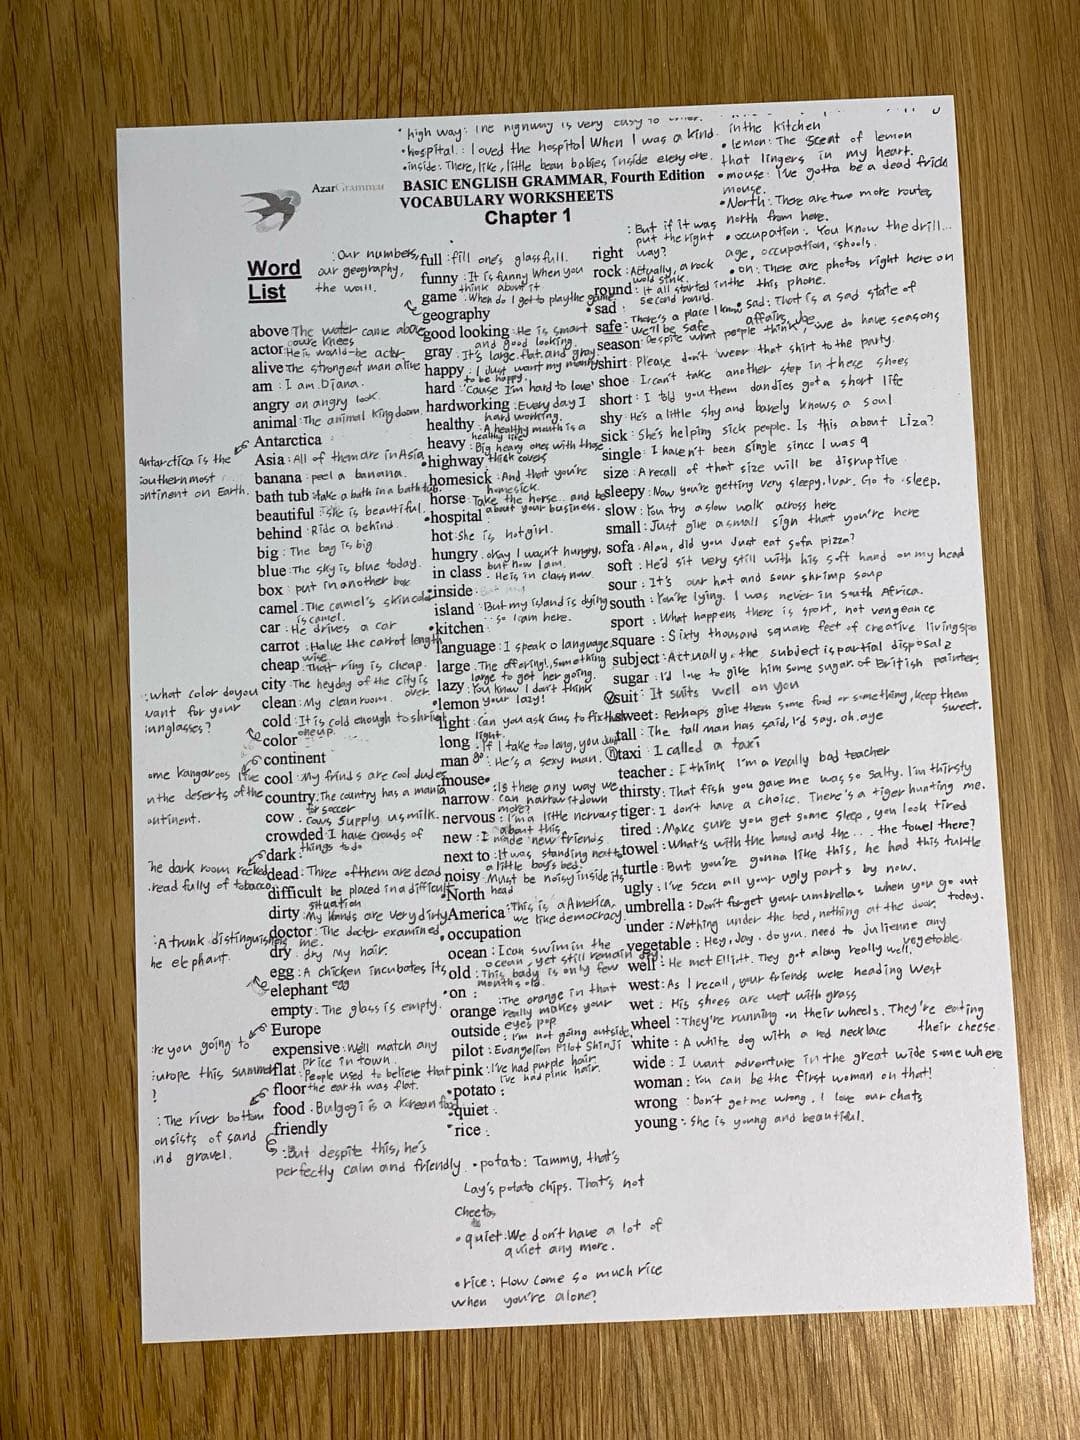 • high way: The highway is very easy to
• hospital : I loved the hospital When I was a kind.
• inside: There, like, little bean babies inside every one.
in the kitchen
• lemon: The scent of lemon
that lingers in my heart.
• mouse: I've gotta be a dead frickin
mouse.
• North: There are two more routes,
north from here.
• occupation: You know the drill...
age, occupation, shools.
• on: There are photos right here on
the this phone.
sad: That is a sad state of
affairs, Joe
AzarGrammar
BASIC ENGLISH GRAMMAR, Fourth Edition
VOCABULARY WORKSHEETS
Chapter 1
Word
List
: Our numbers,
our geography,
the wall.
above The water came above
oure knees
actor He is would-be actor
alive The strongest man alive
am : I am Diana.
angry an angry look.
animal : The animal kingdom
Antarctica
Antarctica is the
southernmost
continent on Earth.
Asia : All of them are in Asia
banana : peel a banana.
bath tub : take a bath in a bath tub.
beautiful : She is beautiful.
behind : Ride a behind.
big : The bag is big
blue : The sky is blue today.
box : put in another box
camel : The camel's skin color
is camel.
car : He drives a car
carrot : Halve the carrot length
wise.
cheap : That ring is cheap.
city : The heyday of the city is
over.
clean : My clean room.
cold : It is cold enough to shrivel
one up.
color
: what color do you
want for your
sunglasses?
continent
some kangaroos live
in the deserts of the
continent.
cool : My frinds are cool dudes
country : The country has a mania
for soccer
cow : Cows supply us milk.
crowded : I have crowds of
things to do
dark
The dark room reeked
dread fully of tobacco
dead : Three of them are dead
difficult : be placed in a difficult
situation
dirty : My hands are very dirty
doctor : The doctor examined
me.
dry : dry My hair.
egg : A chicken incubates its
egg
elephant
: A trunk distinguishes
the elephant.
empty : The glass is empty.
Europe
Are you going to
Europe this summer
?
expensive : We'll match any
price in town.
flat : People used to believe that
the earth was flat.
floor
: The river bottom
consists of sand
and gravel.
food : Bulgogi is a Korean food
friendly
: But despite this, he's
perfectly calm and friendly.
full : fill one's glass full.
funny : It is funny When you
think about it
game : When do I get to play the game
geography
good looking : He is smart
and good looking.
gray : It's large, flat, and gray.
happy : I Just want my mommy
to be happy.
hard : 'Cause I'm hard to love
hardworking : Every day I
hard working.
healthy : A healthy mouth is a
healthy life
heavy : Big heavy ones with those
thick covers
• highway
homesick : And that you're
homesick.
horse : Take the horse... and be
about your business.
• hospital
hot : She is hot girl.
hungry : okay I wasn't hungry,
but now I am.
in class : He is in class now.
• inside :
island : But my island is dying
so I am here.
• kitchen
language : I speak a language
large : The offering!, something
large to get her going.
lazy : You know I don't think
your lazy!
• lemon
light : Can you ask Gus to fix that
light.
long : If I take too long, you Just
go
man : He's a sexy man.
mouse •
narrow : Is there any way we
can narrow it down
more?
nervous : I'm a little nervous
about this
new : I made new friends
next to : It was standing next to
a little boy's bed.
noisy : Must be noisy inside its
head
• North
America : This is America,
we like democracy.
• occupation
ocean : I can swim in the
ocean, yet still remain dry
old : This baby is only few
months old.
• on :
orange : The orange in that
really makes your
eyes pop
outside : I'm not going outside,
pilot : Evangelion Pilot Shinji
pink : I've had purple hair.
I've had pink hair.
• potato :
• quiet :
• rice :
• potato: Tammy, that's
Lay's potato chips. That's not
Cheetos
• quiet : We don't have a lot of
quiet any more.
• rice : How come so much rice
when you're alone?
right : But if it was
put the right
way?
rock : Actually, a rock
wold sink.
round : It all started in the
second round.
• sad :
safe : There's a place I know
we'll be safe
season : Despite what people think, we do have seasons
shirt : Please don't wear that shirt to the party.
shoe : I can't take another step in these shoes
short : I told you them dandies got a short life
shy : He's a little shy and barely knows a soul
sick : She's helping sick people. Is this about Liza?
single : I haven't been single since I was 9
size : A recall of that size will be disruptive
sleepy : Now you're getting very sleepy. Ivar. Go to sleep.
slow : You try a slow walk across here
small : Just give a small sign that you're here
sofa : Alan, did you Just eat sofa pizza?
soft : He'd sit very still with his soft hand on my head
sour : It's our hat and sour shrimp soup
south : You're lying. I was never in South Africa.
sport : What happens there is sport, not vengeance
square : Sixty thousand square feet of creative livingspa
subject : Actually, the subject is partial disposal 2
sugar : I'd love to give him some sugar. of British painter.
suit : It suits well on you
sweet : Perhaps give them some food or something, keep them
sweet.
tall : The tall man has said, I'd say. oh. aye
taxi : I called a taxi
teacher : I think I'm a really bad teacher
thirsty : That fish you gave me was so salty. I'm thirsty
tiger : I don't have a choice. There's a tiger hunting me.
tired : Make sure you get some sleep, you look tired
towel : What's with the hand and the ... the towel there?
turtle : But you're gonna like this, he had this turtle
ugly : I've seen all your ugly parts by now.
umbrella : Don't forget your umbrellas when you go out
today.
under : Nothing under the bed, nothing at the door.
vegetable : Hey, Jay. do you need to julienne any
vegetable.
well : He met Elliott. They got along really well
west : As I recall, your friends were heading West
wet : His shoes are wet with grass
wheel : They're running on their wheels. They're eating
their cheese
white : A white dog with a red necklace
wide : I want adventure in the great wide somewhere
woman : You can be the first woman on that!
wrong : Don't get me wrong. I love our chats
young : She is young and beautiful.